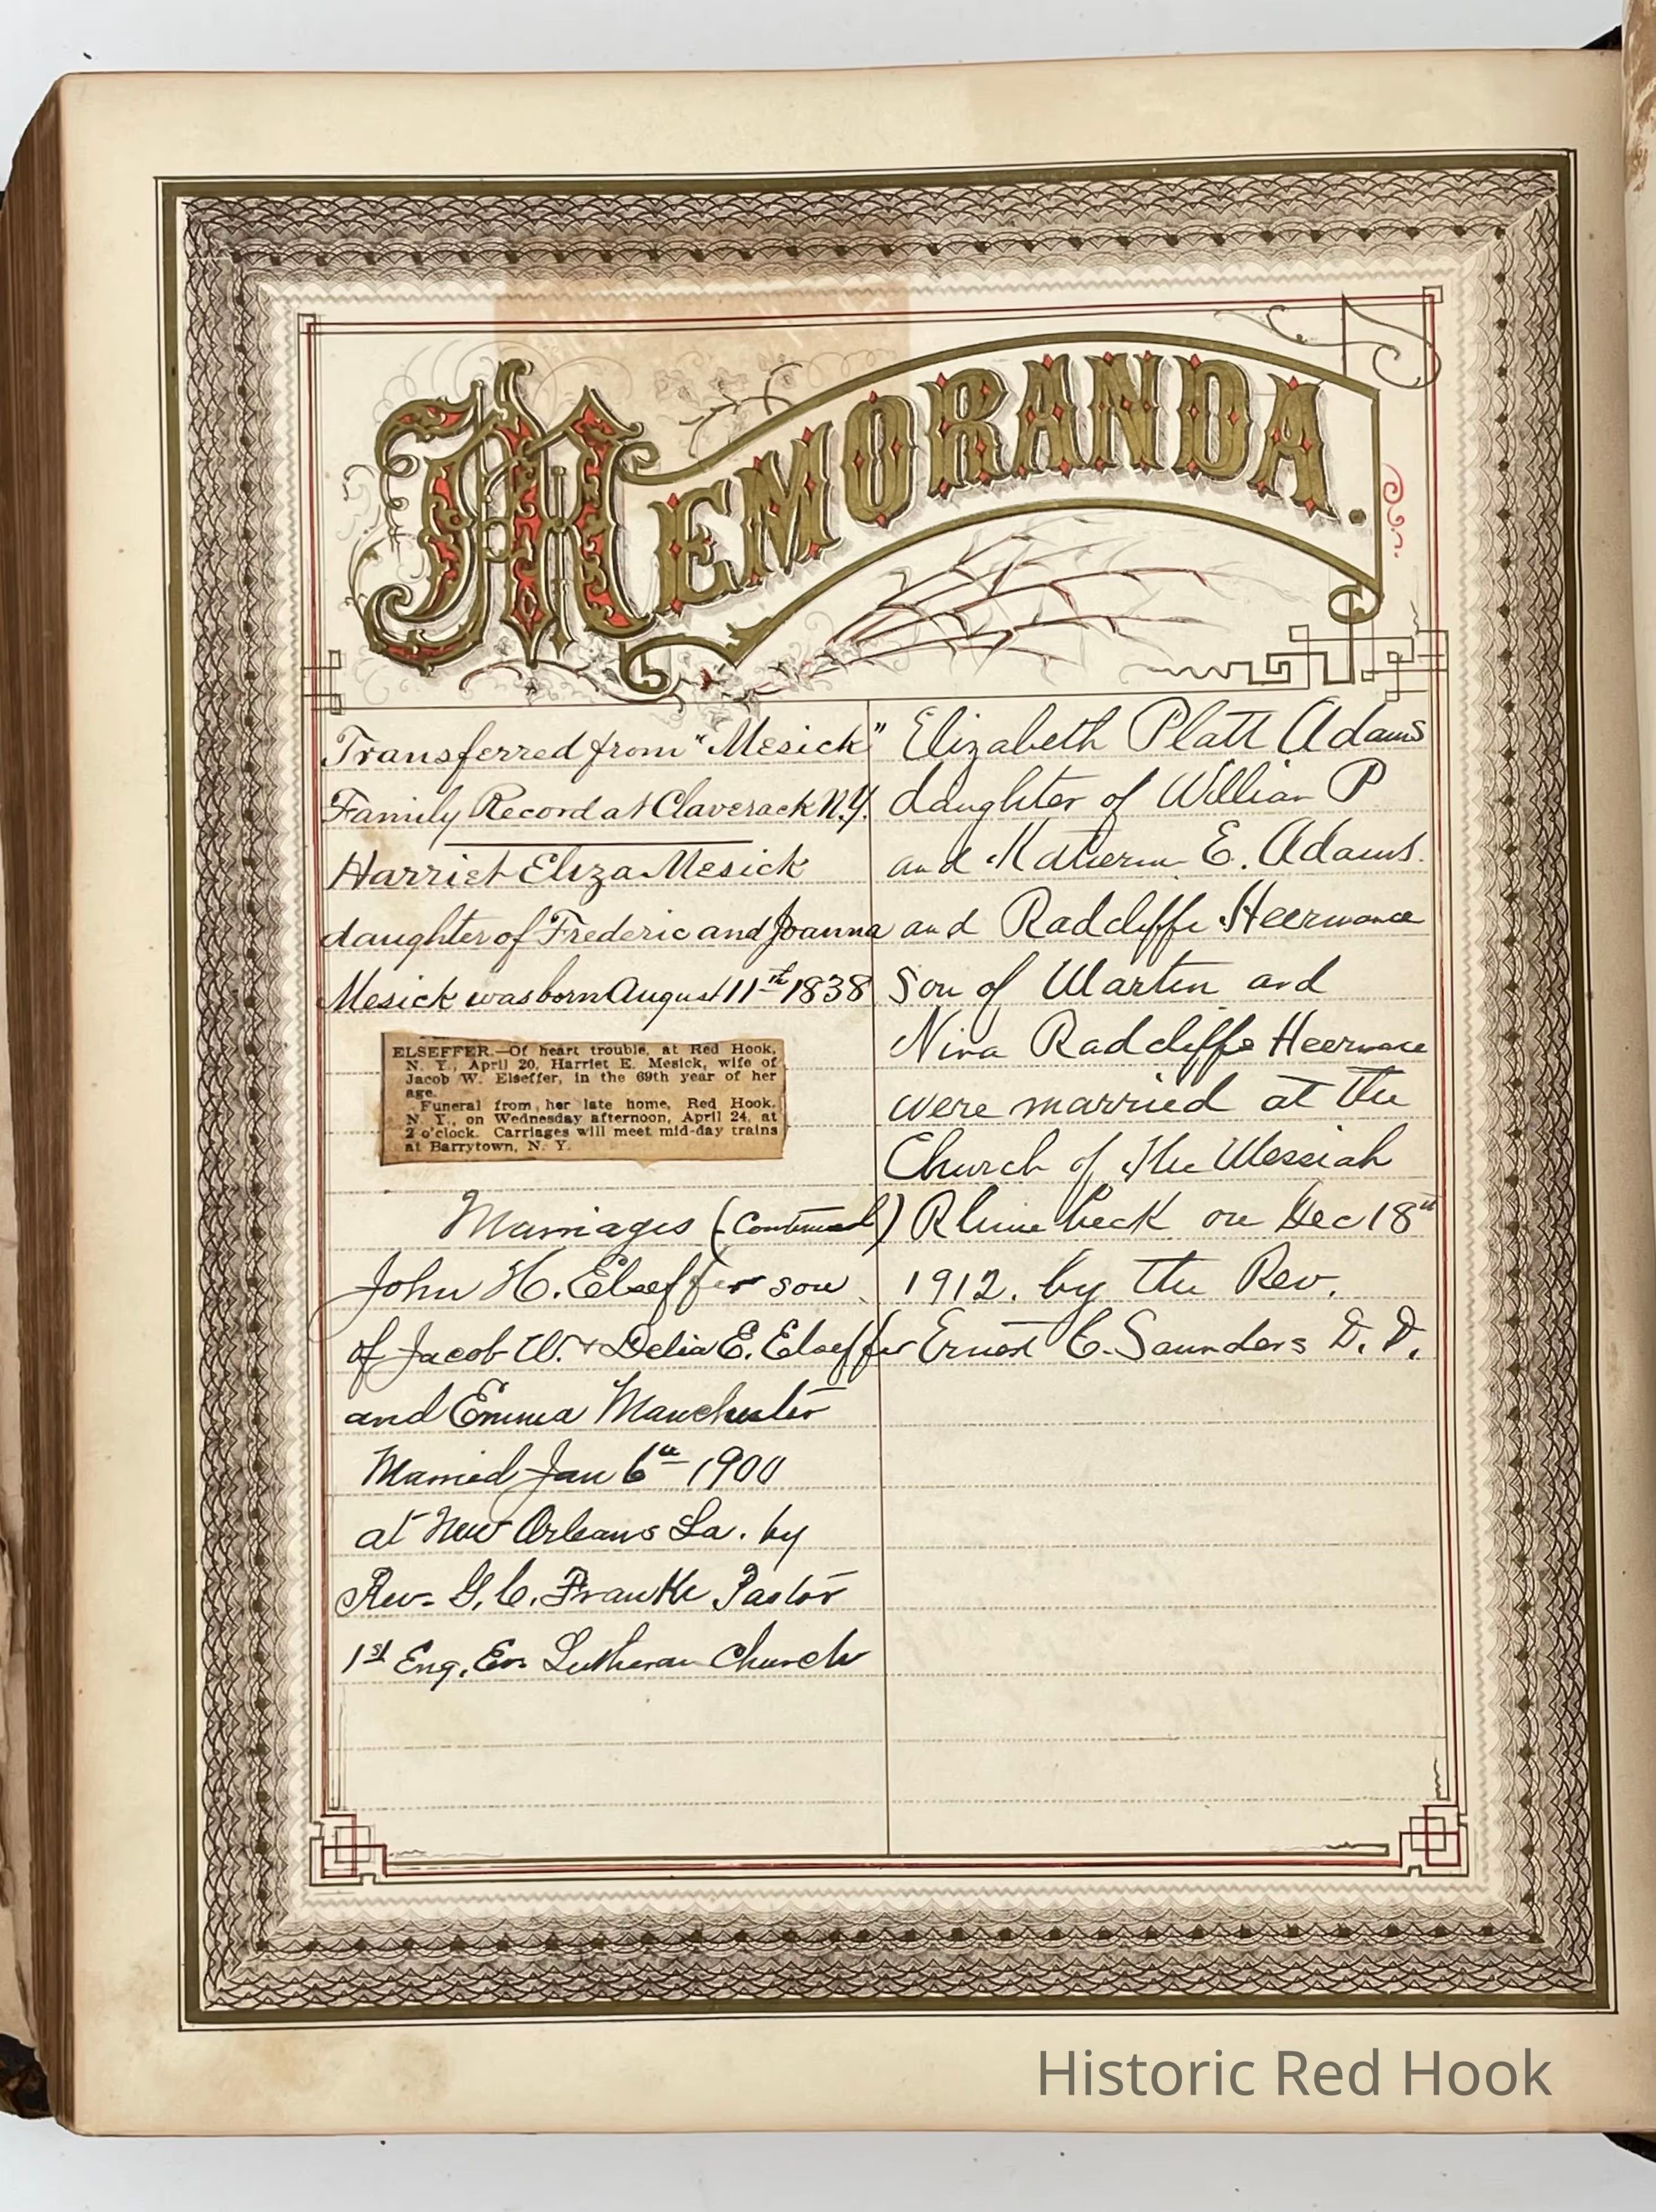 MEMORANDA.
Transferred from "Mesick"
Family Record at Claverack N.Y.
Harriet Eliza Mesick
daughter of Frederic and Joanna
Mesick was born August 11th 1838
ELSEFFER.—Of heart trouble, at Red Hook,
N. Y., April 20, Harriet E. Mesick, wife of
Jacob W. Elseffer, in the 69th year of her
age.
Funeral from her late home, Red Hook,
N. Y., on Wednesday afternoon, April 24, at
2 o'clock. Carriages will meet mid-day trains
at Barrytown, N. Y.
Marriages (Continued)
John H. Elseffer son
of Jacob W. & Delia E. Elseffer
and Emma Manchester
Married Jan 6th 1900
at New Orleans La. by
Rev. G. C. Franke Pastor
1st Eng. Ev. Lutheran Church
Elizabeth Platt Adams
daughter of William P
and Katherin E. Adams.
and Radcliffe Heermance
son of Martin and
Nina Radcliffe Heermance
were married at the
Church of The Messiah
Rhinebeck on Dec 18th
1912. by the Rev.
Ernest C. Saunders D. D.
Historic Red Hook